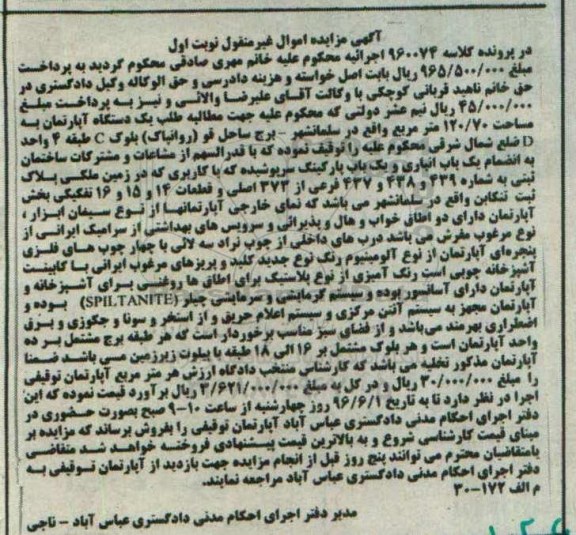 آگهی مزایده اموال غیرمنقول نوبت اول
در پرونده کلاسه ۹۶۰۰۷۴ اجرائیه محکوم علیه خانم مهری صادقی محکوم گردید به پرداخت
مبلغ ۹۶۵/۵۰۰/۰۰۰ ریال بابت اصل خواسته و هزینه دادرسی و حق الوکاله وکیل دادگستری در
حق خانم ناهید قربانی کوچکی با وکالت آقای علیرضا والائی و نیز به پرداخت مبلغ
۴۵/۰۰۰/۰۰۰ ریال نیم عشر دولتی که محکوم علیه جهت مطالبه طلب یک دستگاه آپارتمان به
مساحت ۱۲۰/۷۰ متر مربع واقع در سلمانشهر - برج ساحل قو (روانباک) بلوک C طبقه ۴ واحد
D ضلع شمال شرقی محکوم علیه را توقیف نموده که با قدرالسهم از مشاعات و مشترکات ساختمان
به انضمام یک باب انباری و یک باب پارکینگ سرپوشیده که با کاربری که در زمین ملکی پلاک
ثبتی به شماره ۴۳۹ و ۴۳۸ و ۴۳۷ فرعی از ۳۷۳ اصلی و قطعات ۱۴ و ۱۵ و ۱۶ تفکیکی بخش
ثبت تنکابن واقع در سلمانشهر می باشد که نمای خارجی آپارتمانها از نوع سیمان ابزار،
آپارتمان دارای دو اطاق خواب و هال و پذیرائی و سرویس های بهداشتی از سرامیک ایرانی از
نوع مرغوب مفرش می باشد درب های داخلی از چوب نراد سه لائی با چهار چوب های فلزی
پنجره‌ای آپارتمان از نوع آلومینیوم رنگ نوع جدید کلید و پریزهای مرغوب ایرانی با کابینت
آشپزخانه چوبی است رنگ آمیزی از نوع پلاستیک برای اطاق ها روغنی برای آشپزخانه و
آپارتمان دارای آسانسور بوده و سیستم گرمایشی و سرمایشی چیلر (SPILTANITE) بوده و
آپارتمان مجهز به سیستم آنتن مرکزی و سیستم اعلام حریق و از استخر و سونا و جکوزی و برق
اضطراری بهرمند می‌باشد و از فضای سبز مناسب برخوردار است که هر طبقه برج مشتمل بر ده
واحد آپارتمان است و هر بلوک مشتمل بر ۱۶ الی ۱۸ طبقه با پیلوت زیرزمین می باشد ضمنا
آپارتمان مذکور تخلیه می باشد که کارشناس منتخب دادگاه ارزش هر متر مربع آپارتمان توقیفی
را مبلغ ۳۰/۰۰۰/۰۰۰ ریال و در کل به مبلغ ۳/۶۲۱/۰۰۰/۰۰۰ ریال برآورد قیمت نموده که این
اجرا در نظر دارد تا به تاریخ ۹۶/۶/۱ روز چهارشنبه از ساعت ۱۰-۹ صبح بصورت حضوری در
دفتر اجرای احکام مدنی دادگستری عباس آباد آپارتمان توقیفی را بفروش برساند که مزایده بر
مبنای قیمت کارشناسی شروع و به بالاترین قیمت پیشنهادی فروخته خواهد شد متقاضی
یامتقاضیان محترم می توانند پنج روز قبل از انجام مزایده جهت بازدید از آپارتمان توقیفی به
دفتر اجرای احکام مدنی دادگستری عباس آباد مراجعه نمایند.
م الف ۱۷۲-۳۰
مدیر دفتر اجرای احکام مدنی دادگستری عباس آباد - ناجی